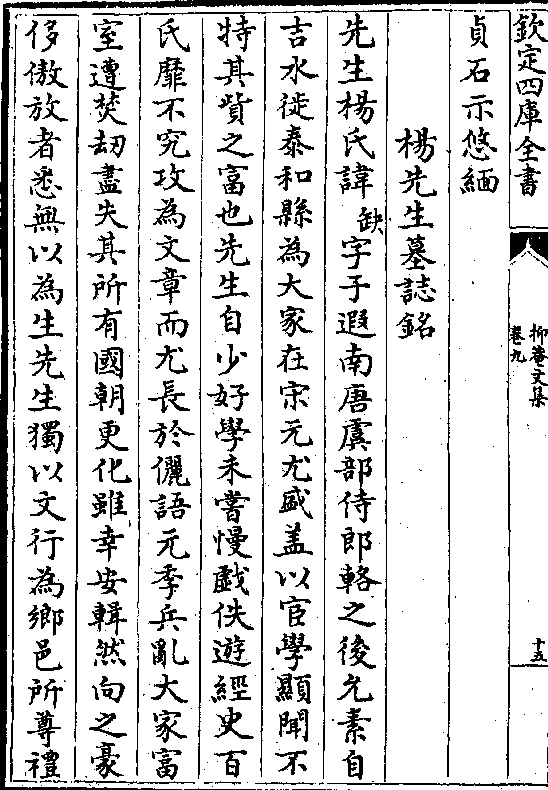 欽定四庫全書
抑菴文集
卷九
十五
貞石示悠緬
楊先生墓誌銘
先生楊氏諱缺字子遐南唐虞部侍郎輅之後允素自
吉水徙泰和縣為大家在宋元尤盛盖以宦學顯聞不
特其貲之富也先生自少好學未嘗慢戲佚遊經史百
氏靡不究攻為文章而尤長於儷語元季兵亂大家富
室遭焚刼盡失其所有國朝更化雖幸安輯然向之豪
侈傲放者悉無以為生先生獨以文行為鄉邑所尊禮